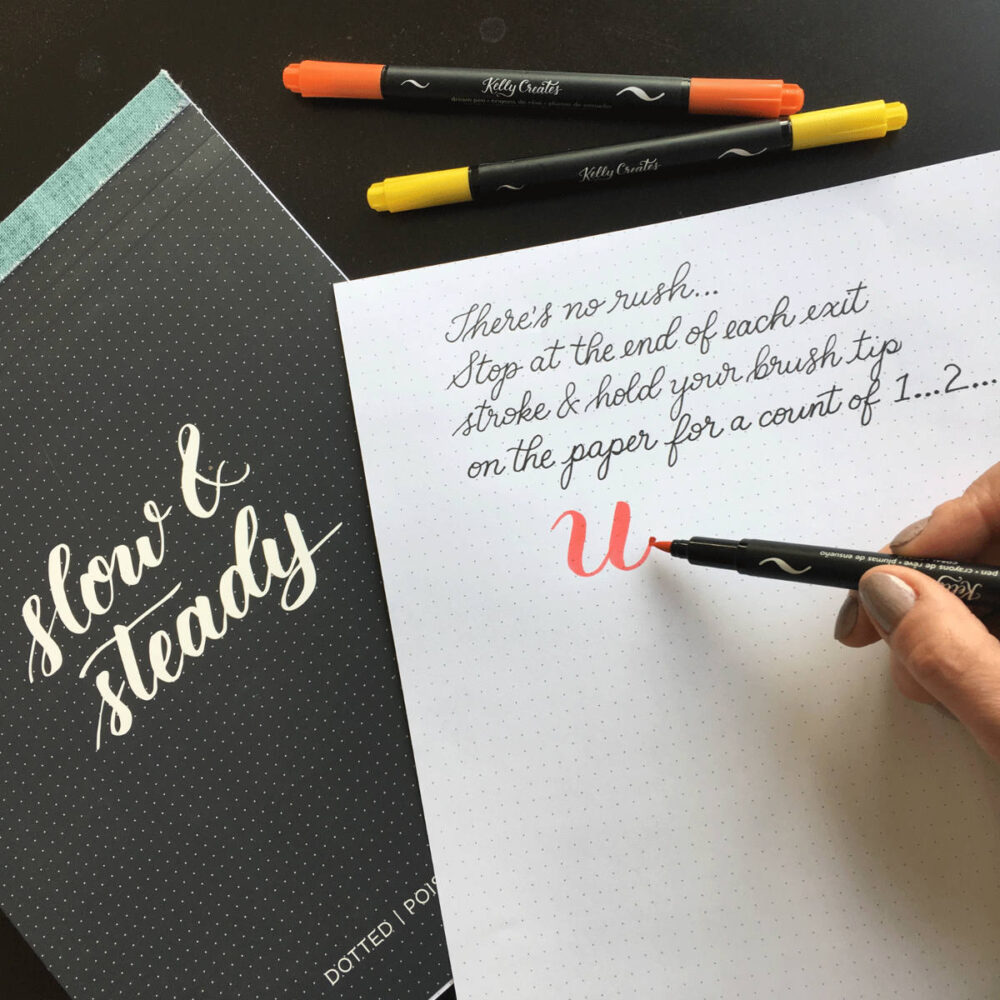 Kelly Creates
dream pen • crayons de rêve • plumas de ensueño
Kelly Creates
There's no rush...
Stop at the end of each exit
stroke & hold your brush tip
on the paper for a count of 1...2...
u
pen • crayons de rêve • plumas de ensueño
Kelly
slow &
steady
DOTTED |